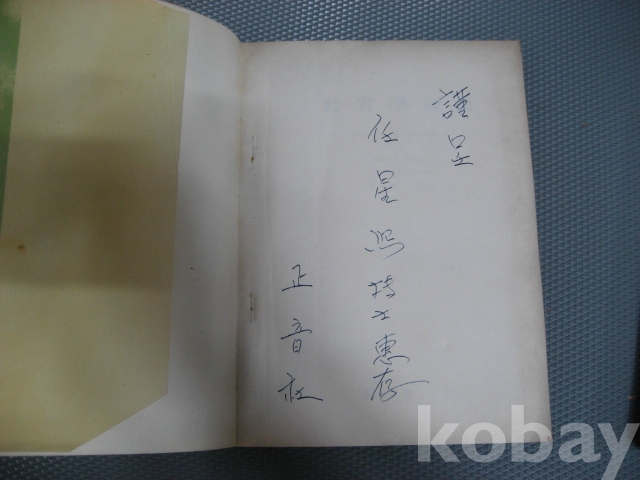 謹呈
任星熙博士惠存
正音社
kobay